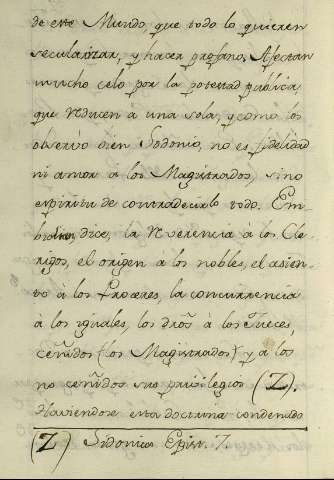 de este Mundo, que todo lo quieren
secularizar, y hacer profano. Afectan
mucho celo por la potestad publica,
que reducen à una sola, y como los
observò bien Sidonio, no es fidelidad
ni amor à los Magistrados, sino
espiritu de contradecirlo todo. Em-
bidian, dice, la reverencia à los Cle-
rigos, el origen à los nobles, el asien-
to à los Proceres, la concurrencia
à los iguales, los dros à los Jueces,
ceñidos (los Magistrados) y à los
no ceñidos sus privilegios (Z).
Haviendose esta doctrina condenado
(Z) Sidonius Epist. 7.